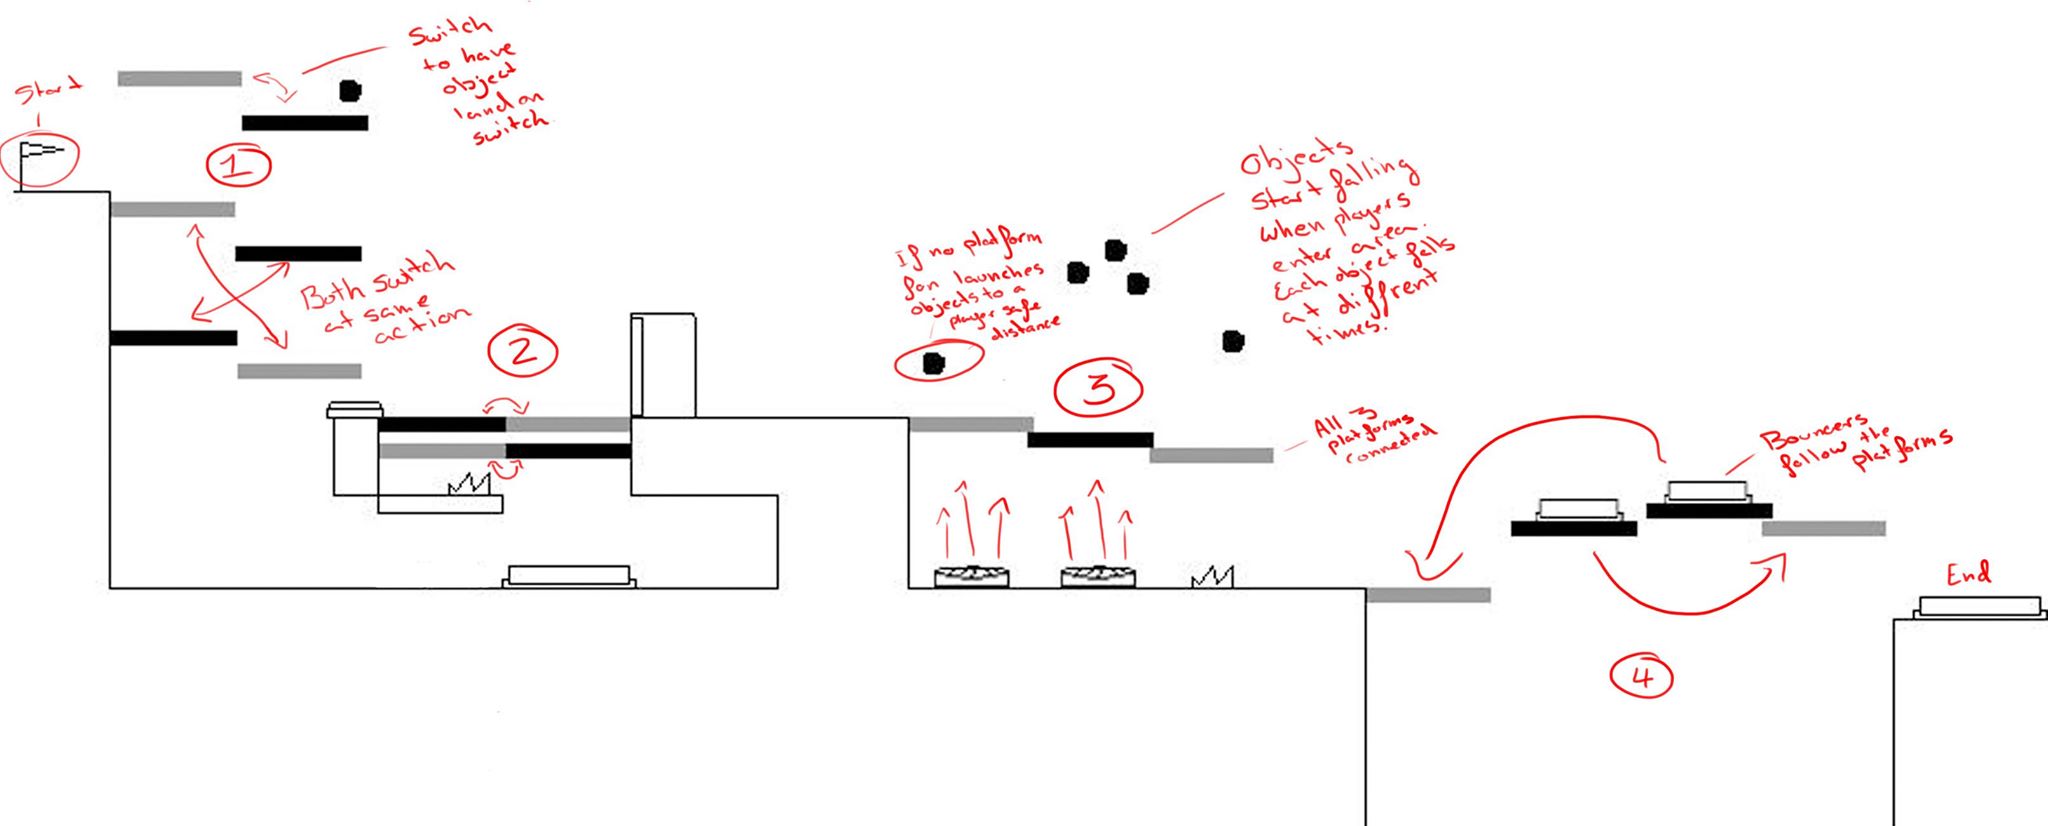 Start
Switch
to have
object
land on
switch
1
Both switch
at same
action
2
If no platform
fan launches
objects to a
player safe
distance
Objects
start falling
when players
enter area.
Each object falls
at diffrent
times.
3
All 3
platforms
conneded
Bouncers
follow the
platforms
4
End